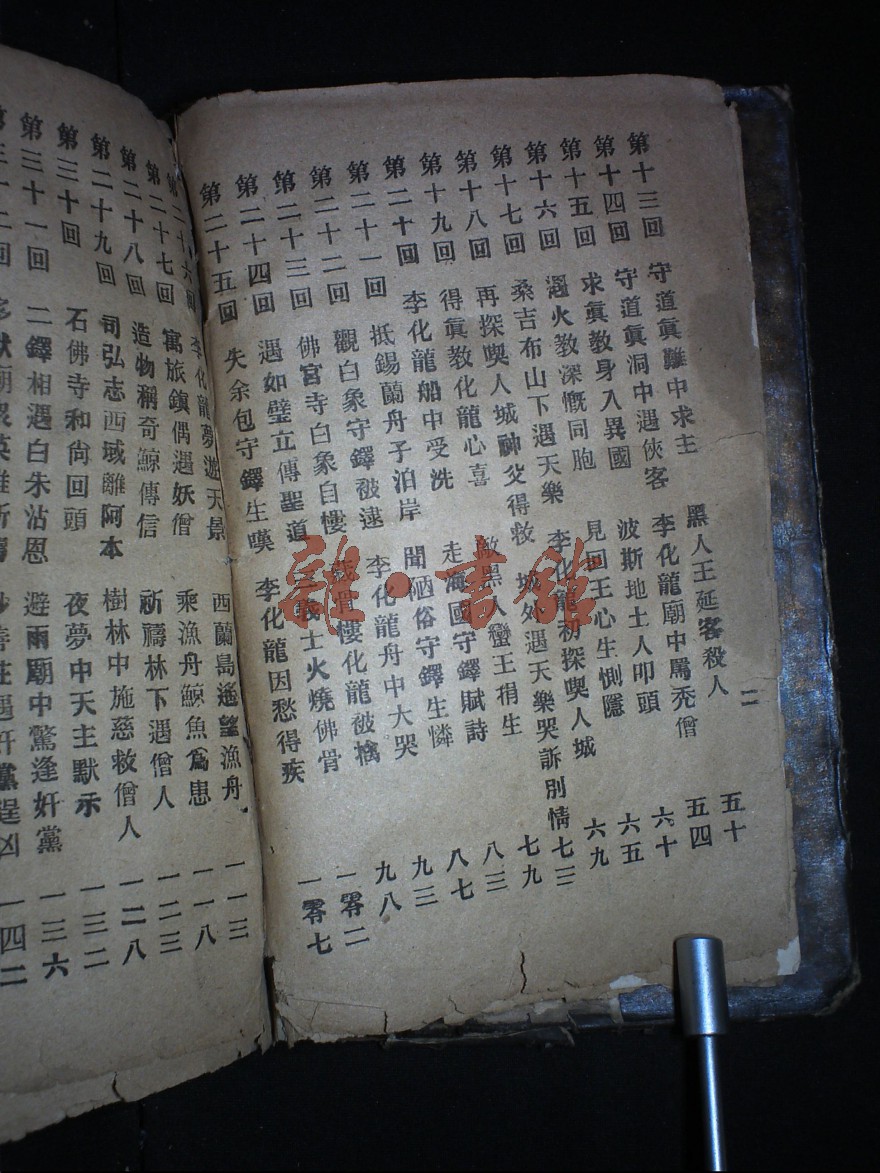 二
第十三回 守道眞難中求主 黑人王延客殺人 五十
第十四回 守道眞洞中遇俠客 李化龍廟中罵禿僧 五四
第十五回 求眞教身入異國 波斯地土人叩頭 六十
第十六回 遇火教深慨同胞 見回王心生惻隱 六五
第十七回 桑吉布山下遇天樂 李化龍初探喫人城 六九
第十八回 再探喫人城神父得救 城外遇天樂哭訴別情 七三
第十九回 得眞教化龍心喜 敵黑人蠻王捐生 七九
第二十回 李化龍船中受洗 走海國守鐸賦詩 八三
第二十一回 抵錫蘭舟子泊岸 聞陋俗守鐸生憐 八七
第二十二回 觀白象守鐸被逮 李化龍舟中大哭 九三
第二十三回 佛宮寺白象自樓 骨樓化龍被擒 九八
第二十四回 遇如璧立傳聖道 三義士火燒佛骨 一零二
第二十五回 失余包守鐸生嘆 李化龍因愁得疾 一零七
第二十六回 李化龍夢遊天景 西蘭島遙望漁舟 一一三
第二十七回 寓旅鎭偶遇妖僧 乘漁舟鯨魚爲患 一一八
第二十八回 造物稱奇鯨傳信 祈禱林下遇僧人 一二三
第二十九回 司弘志西域離阿本 樹林中施慈救僧人 一二八
第三十回 石佛寺和尙回頭 夜夢中天主默示 一三二
第三十一回 二鐸相遇白朱沾恩 避雨廟中驚逢奸黨 一三六
第三十二回 一四二
雜·書館